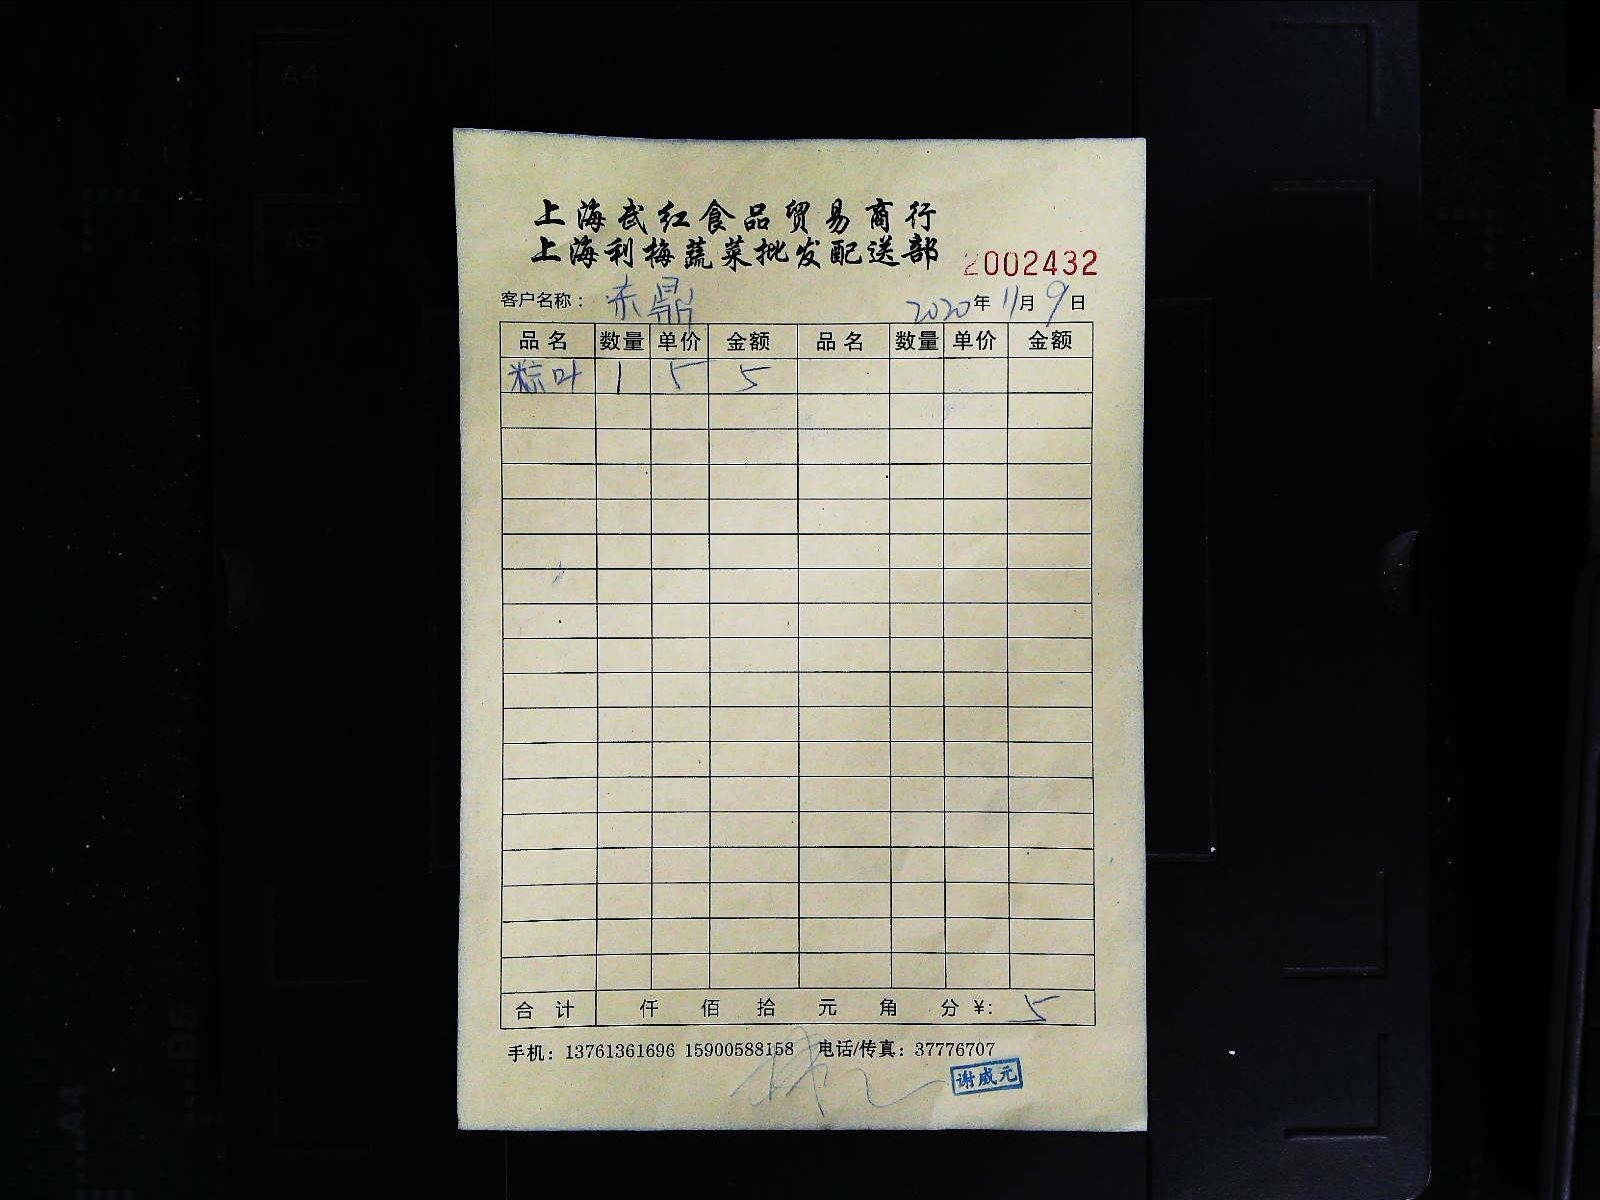 上海武红食品贸易商行
上海利梅蔬菜批发配送部
2002432
客户名称： 赤鼎 2020年 11月 9日
品名 数量 单价 金额 品名 数量 单价 金额
粽叶 1 5 5
合计 仟 佰 拾 元 角 分 ¥: 5
手机：13761361696 15900588158 电话/传真：37776707
谢威元
A4
A5
B5
A4